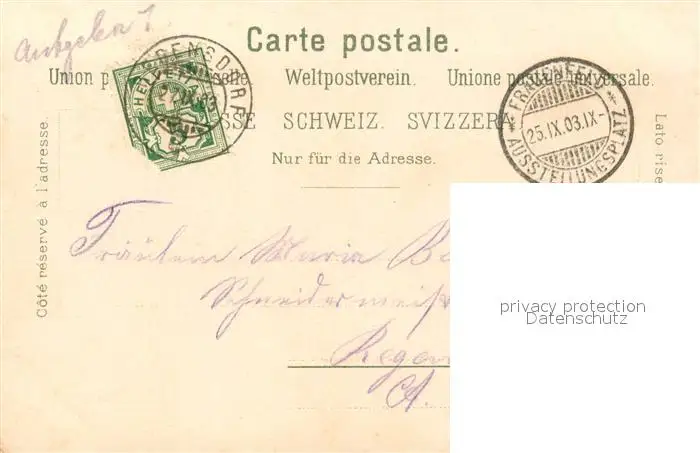 Aufgeben 1
Carte postale.
Union postale universelle. Weltpostverein. Unione postale universale.
SSE SCHWEIZ. SVIZZERA
Nur für die Adresse.
Côté réservé à l'adresse.
Lato rise
HELVETIA
ENSDORF
FRAUENFELD
25.IX.03.IX-
AUSSTELLUNGSPLATZ
Fräulein Maria Ba
Schneidermeist
Regen
Ct.
privacy protection
Datenschutz